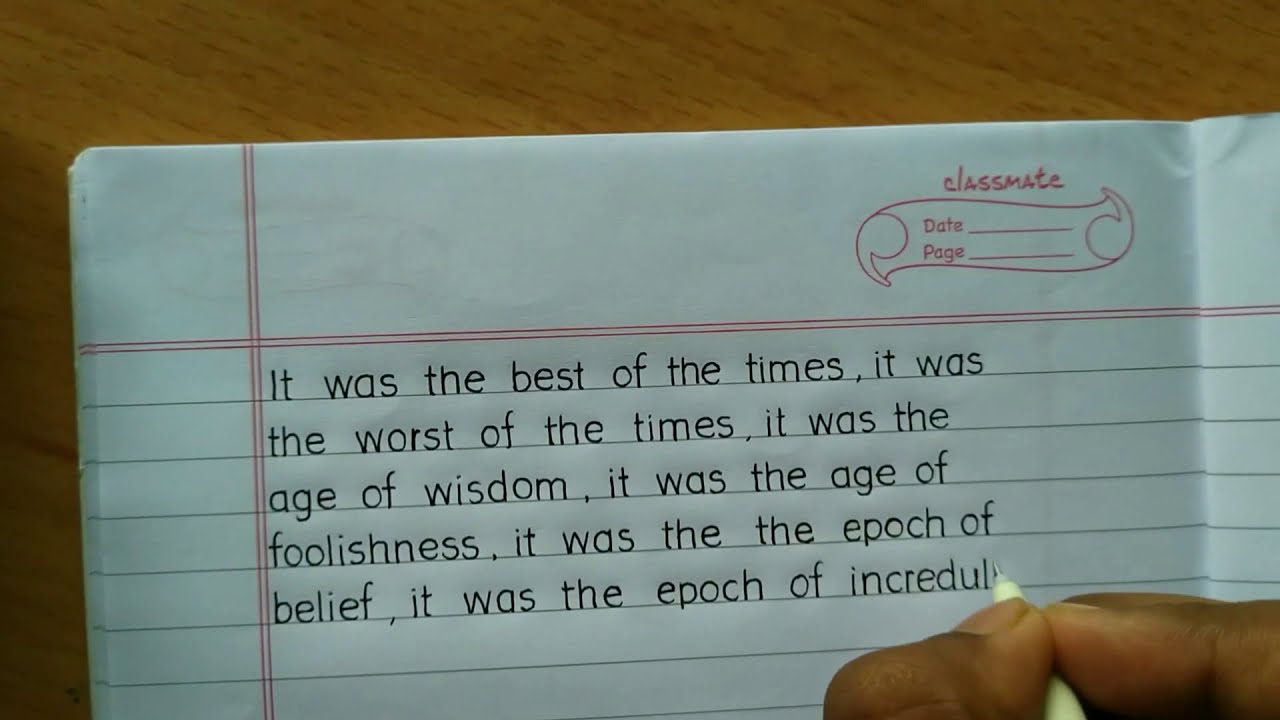 classmate
Date
Page
It was the best of the times, it was
the worst of the times, it was the
age of wisdom, it was the age of
foolishness, it was the the epoch of
belief, it was the epoch of incredul